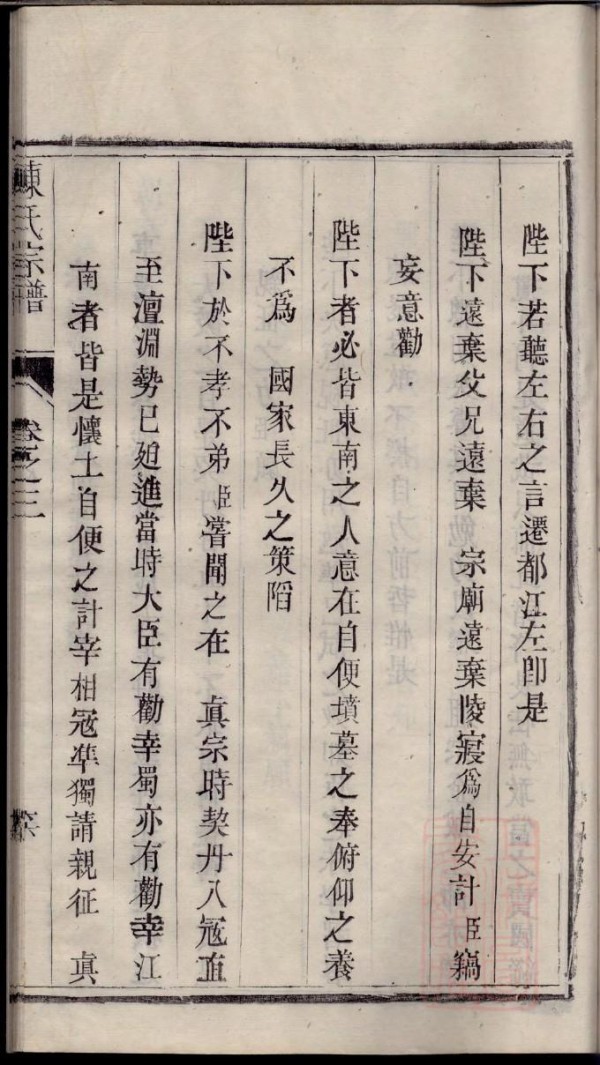 陛下若聽左右之言遷都江左卽是
陛下遠棄父兄遠棄 宗廟遠棄陵寢爲自安計臣竊
妄意勸
陛下者必皆東南之人意在自便墳墓之奉俯仰之養
不爲 國家長久之策陷
陛下於不孝不弟臣嘗聞之在 真宗時契丹入冦直
至澶淵勢已廹進當時大臣有勸幸蜀亦有勸幸江
南者皆是懷土自便之計宰相冦凖獨請親征 真
陳氏宗譜 卷之三 六